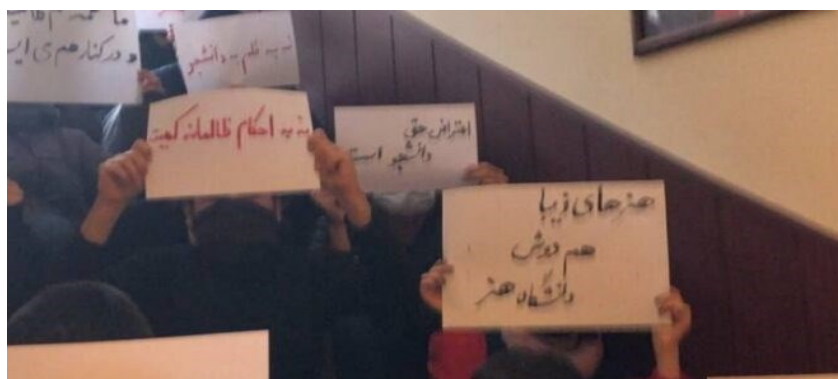 ما همه
و در کنار هم می
نه به ظلم به دانشجو
نه به احکام ظالمانه کمیته
اعتراض حق
دانشجو است
هنرهای زیبا
هم دوش
دانشگاه هنر